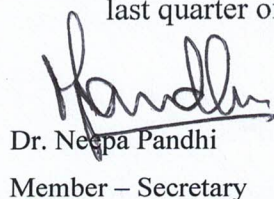 last quarter o
Pandhi
Dr. Neepa Pandhi
Member – Secretary